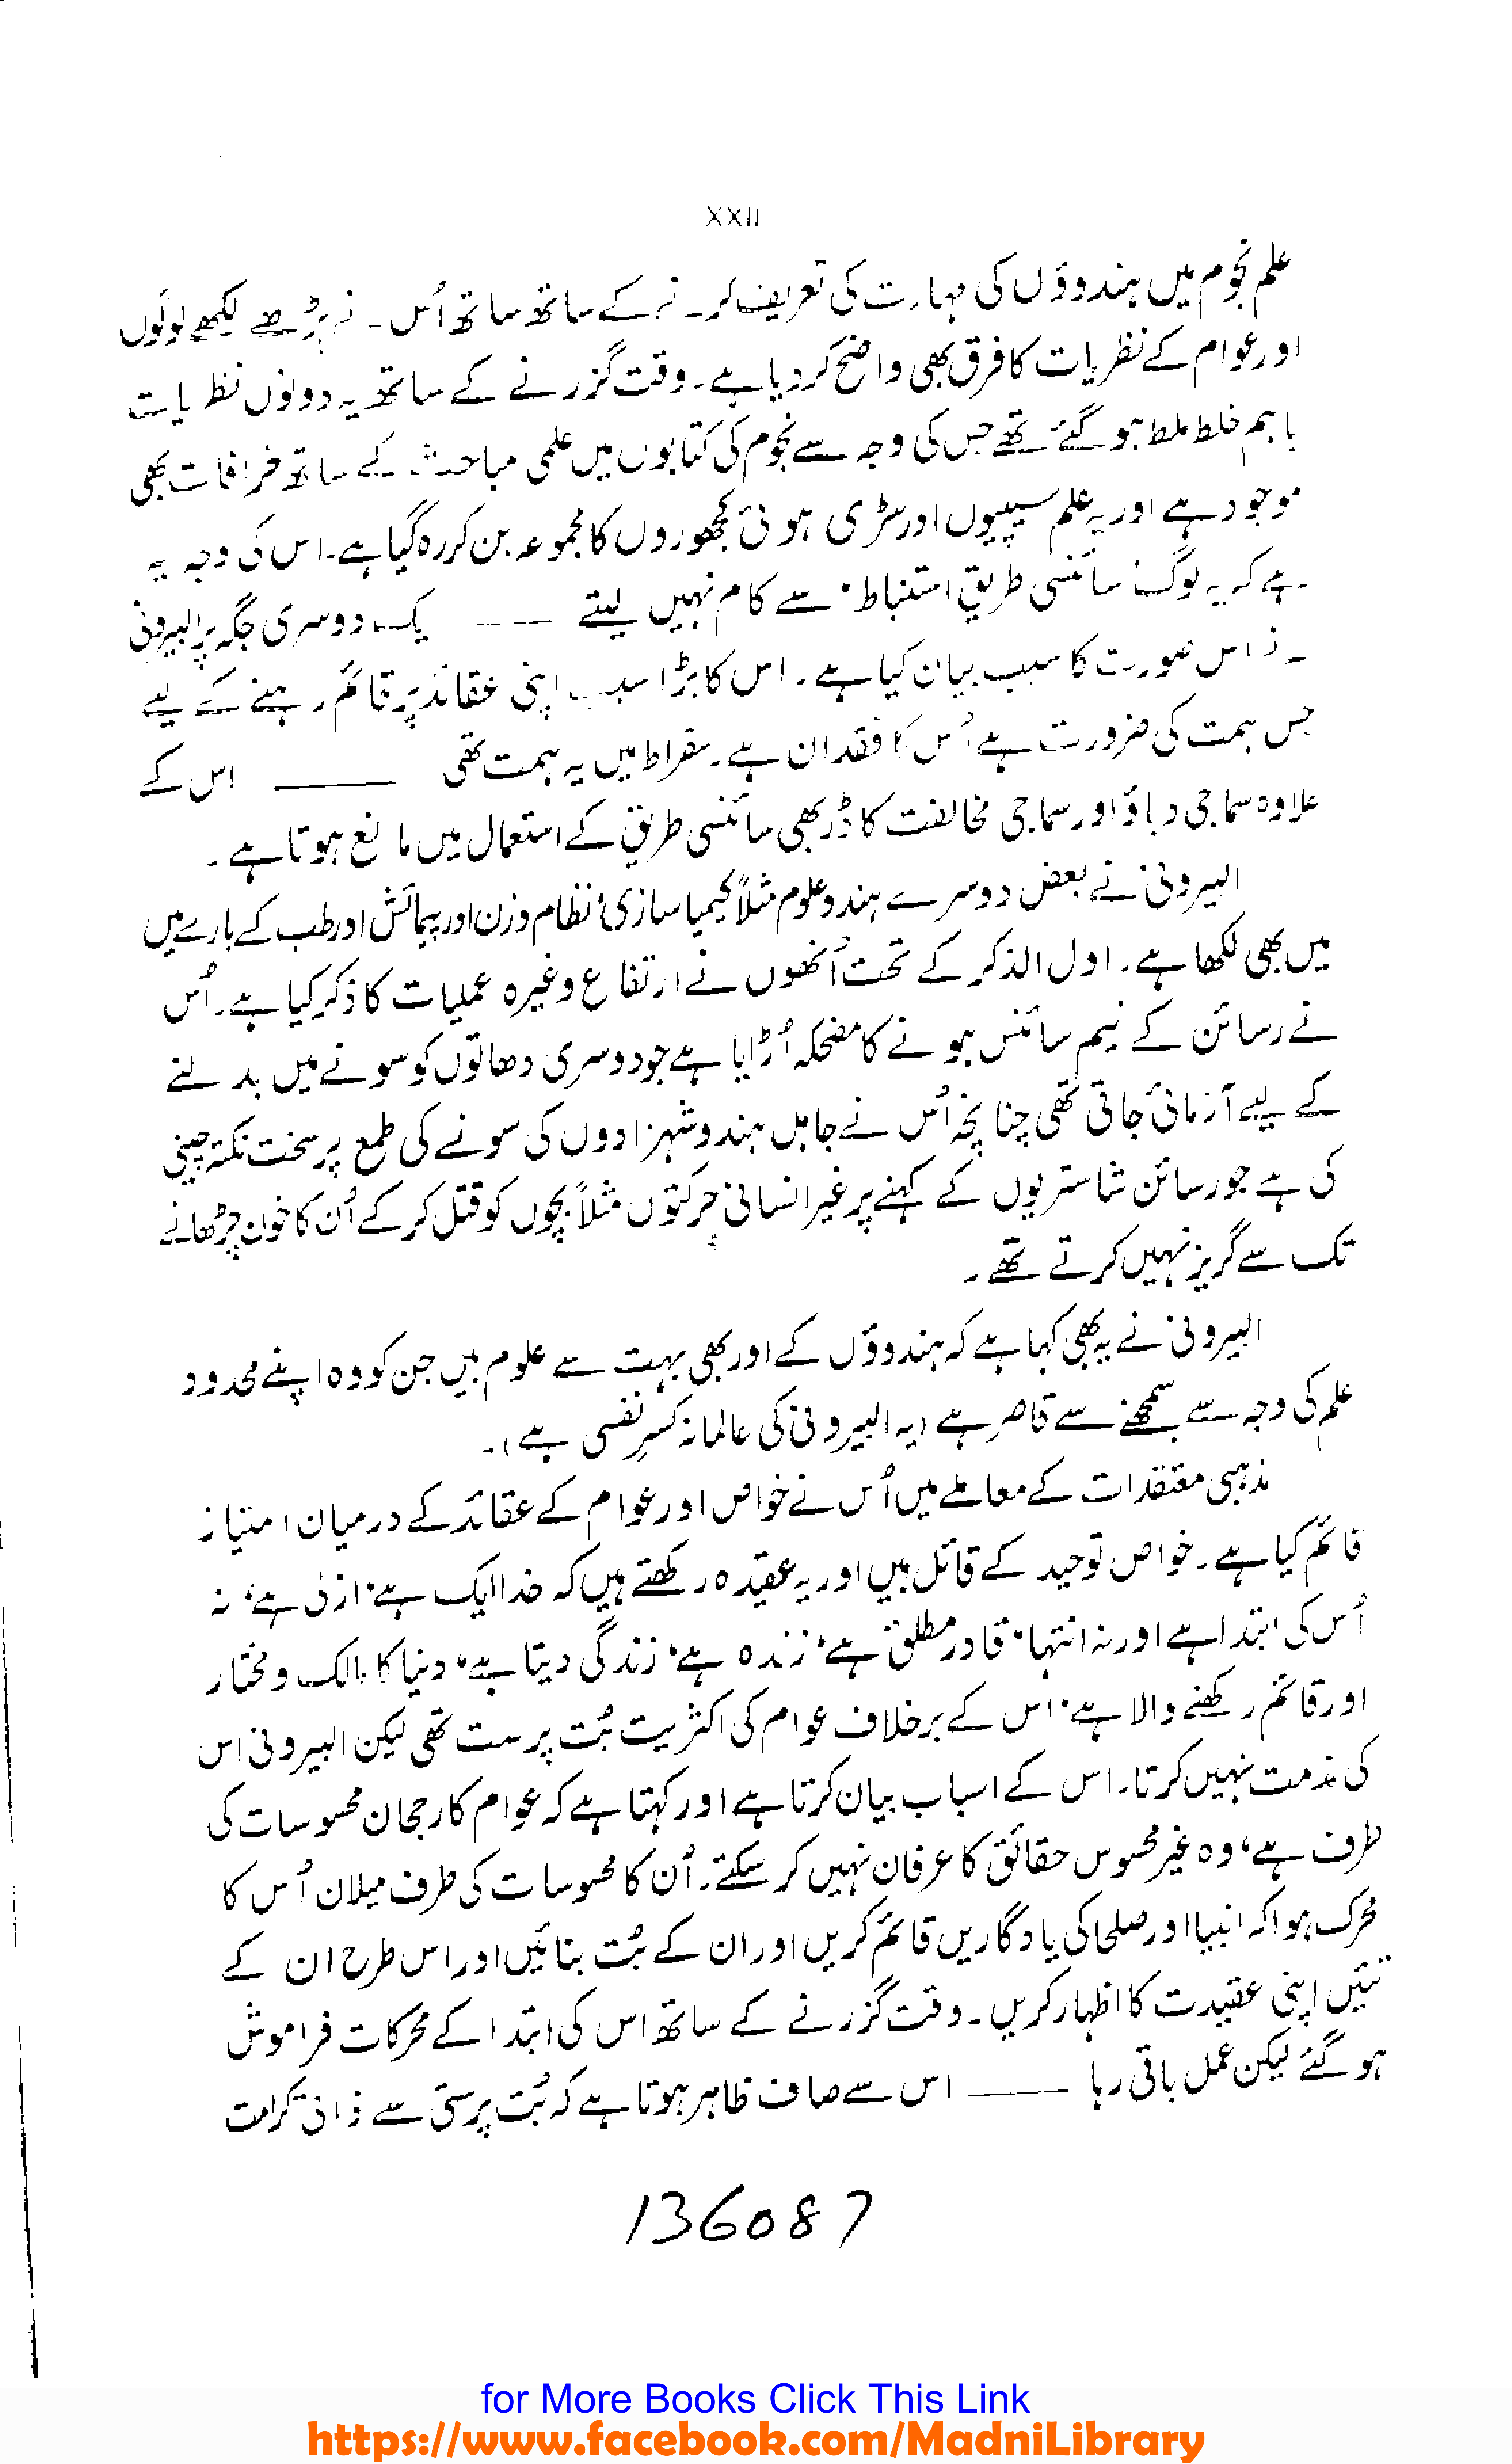 XXII
علم نجوم میں ہندوؤں کی مہارت کی تعریف کرنے کے ساتھ ساتھ اُس نے پڑھے لکھے لوگوں
اور عوام کے نظریات کا فرق بھی واضح کر دیا ہے۔ وقت گزرنے کے ساتھ یہ دونوں نظریات
باہم خلط ملط ہو گئے تھے جس کی وجہ سے نجوم کی کتابوں میں علمی مباحث کے ساتھ خرافات بھی
موجود ہے اور یہ علم سیپیوں اور سڑی ہوئی کھجوروں کا مجموعہ بن کر رہ گیا ہے۔ اس کی وجہ یہ
ہے کہ یہ لوگ سائنسی طریقِ استنباط سے کام نہیں لیتے —— یک دوسری جگہ پر البیرونی
نے اس صورت کا سبب بیان کیا ہے۔ اس کا بڑا سبب اپنی عقائد پر قائم رہنے کے لیے
جس ہمت کی ضرورت ہے اُس کا فقدان ہے۔ سقراط میں یہ ہمت تھی —— اس کے
علاوہ سماجی دباؤ اور سماجی مخالفت کا ڈر بھی سائنسی طریق کے استعمال میں مانع ہوتا ہے۔
البیرونی نے بعض دوسرے ہندو علوم مثلاً کیمیا سازی، نظام وزن اور پیمائش اور طب کے بارے میں
میں بھی لکھا ہے۔ اول الذکر کے تحت اُنھوں نے ارتفاع وغیرہ عملیات کا ذکر کیا ہے۔ اُس
نے رسائن کے نیم سائنس ہونے کا مضحکہ اُڑایا ہے جو دوسری دھاتوں کو سونے میں بدلنے
کے لیے آزمائی جاتی تھی چنانچہ اُس نے جاہل ہندو شہزادوں کی سونے کی طمع پر سخت نکتہ چینی
کی ہے جو رسائن شاستریوں کے کہنے پر غیر انسانی حرکتوں مثلاً بچوں کو قتل کر کے اُن کا خون چڑھانے
تک سے گریز نہیں کرتے تھے۔
البیرونی نے یہ بھی کہا ہے کہ ہندوؤں کے اور بھی بہت سے علوم ہیں جن کو وہ اپنے محدود
علم کی وجہ سے سمجھنے سے قاصر ہے (یہ البیرونی کی عالمانہ کسرِ نفسی ہے)۔
مذہبی معتقدات کے معاملے میں اُس نے خواص اور عوام کے عقائد کے درمیان امتیاز
قائم کیا ہے۔ خواص توحید کے قائل ہیں اور یہ عقیدہ رکھتے ہیں کہ خدا ایک ہے، ازلی ہے، نہ
اُس کی ابتدا ہے اور نہ انتہا، قادرِ مطلق ہے، زندہ ہے، زندگی دیتا ہے، دنیا کا مالک و مختار
اور قائم رکھنے والا ہے، اس کے برخلاف عوام کی اکثریت بُت پرست تھی لیکن البیرونی اس
کی مذمت نہیں کرتا۔ اس کے اسباب بیان کرتا ہے اور کہتا ہے کہ عوام کا رجحان محسوسات کی
طرف ہے، وہ غیر محسوس حقائق کا عرفان نہیں کر سکتے۔ اُن کا محسوسات کی طرف میلان اُس کا
محرک ہوا کہ انبیا اور صلحا کی یادگاریں قائم کریں اور ان کے بُت بنائیں اور اس طرح ان کے
تئیں اپنی عقیدت کا اظہار کریں۔ وقت گزرنے کے ساتھ اس کی ابتدا کے محرکات فراموش
ہو گئے لیکن عمل باقی رہا —— اس سے صاف ظاہر ہوتا ہے کہ بُت پرستی سے ذاتی کرامت
136087
for More Books Click This Link
https://www.facebook.com/MadniLibrary